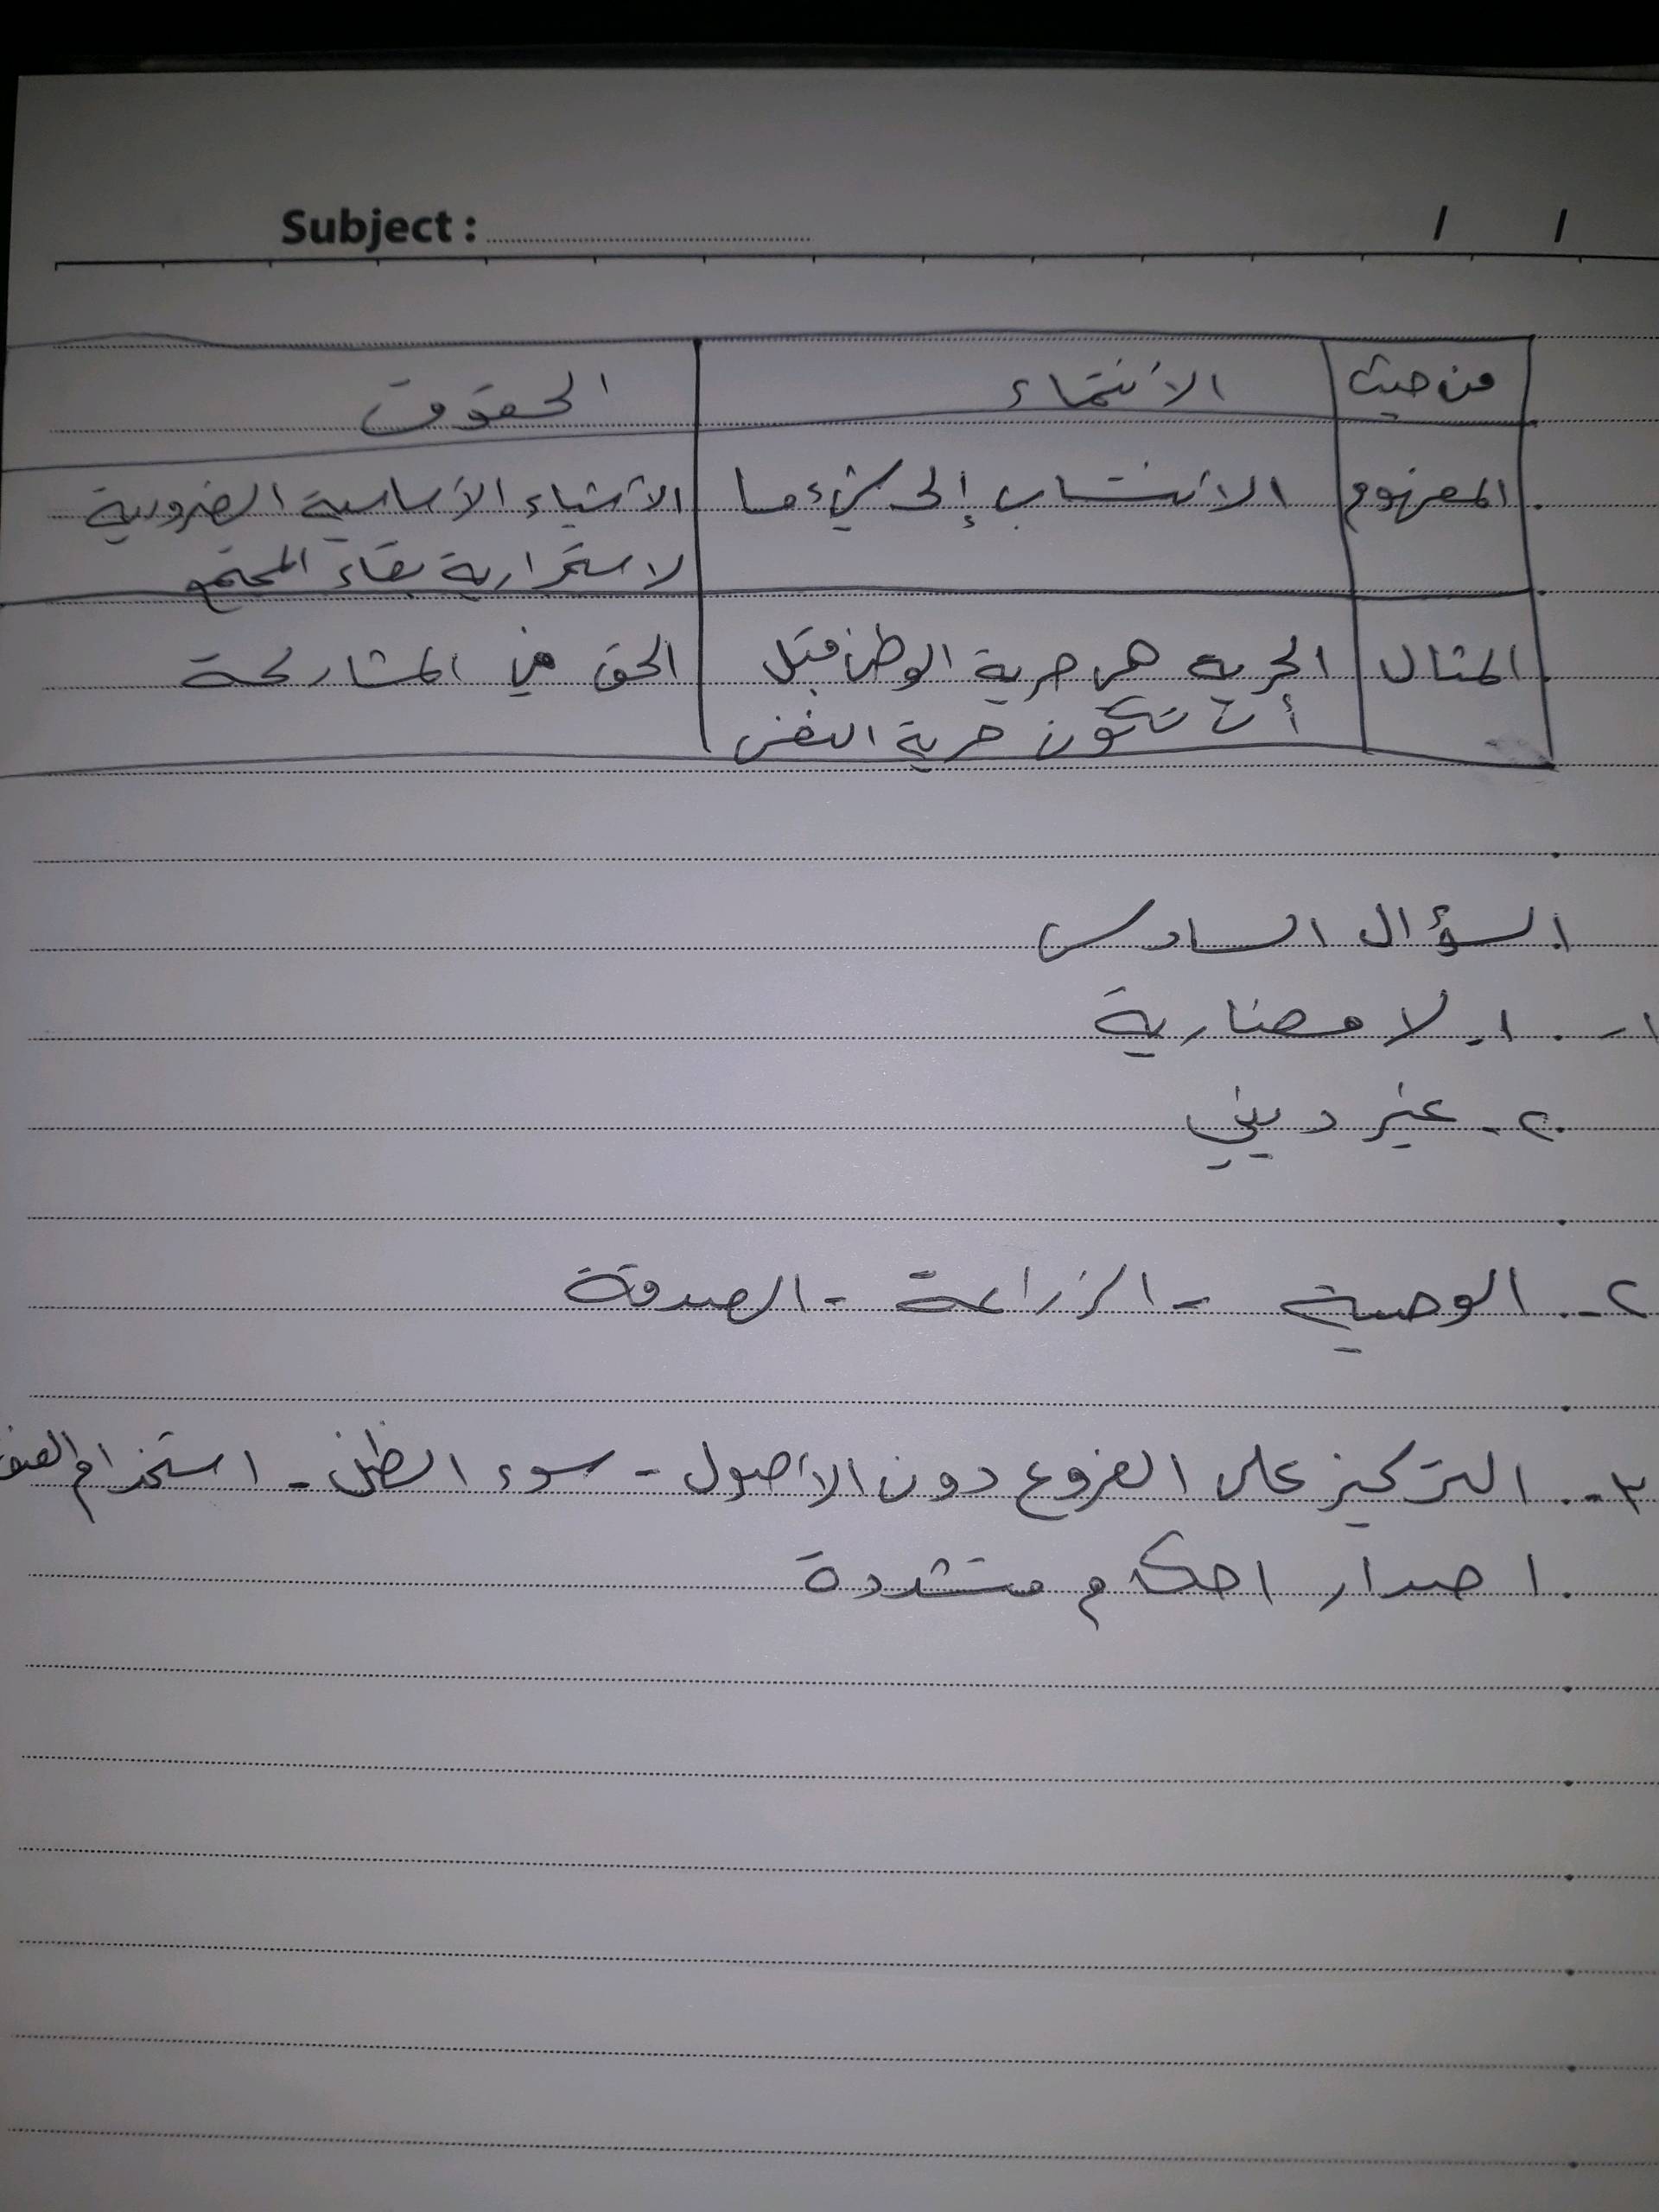 Subject : / /
من حيث الأنتماء الحقوق
المفهوم الأنتساب إلى شيء ما الأشياء الأساسية الضرورية
لاستمرارية بقاء المجتمع
المثال الحرية هي حرية الوطن قبل الحق في المشاركة
أن تكون حرية النفس
السؤال السادس
١- ١- لا
٢- غير ديني
٢- الوصية - الزراعة - الصدقة
٣- التركيز على الفروع دون الأصول - سوء الظن - استخدام
اصدار احكام متشددة